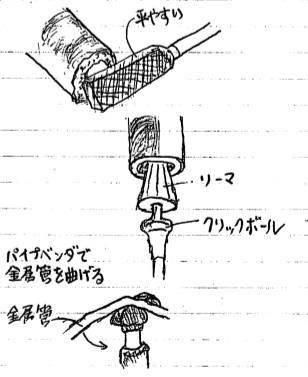 平やすい
リーマ
クリックボール
パイプベンダで
金属管を曲げる
金属管